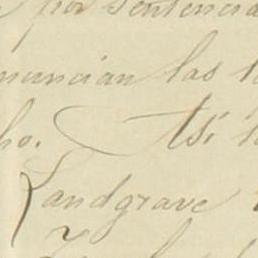 por sentencia
nuncian las
ho. Así
Landgrave